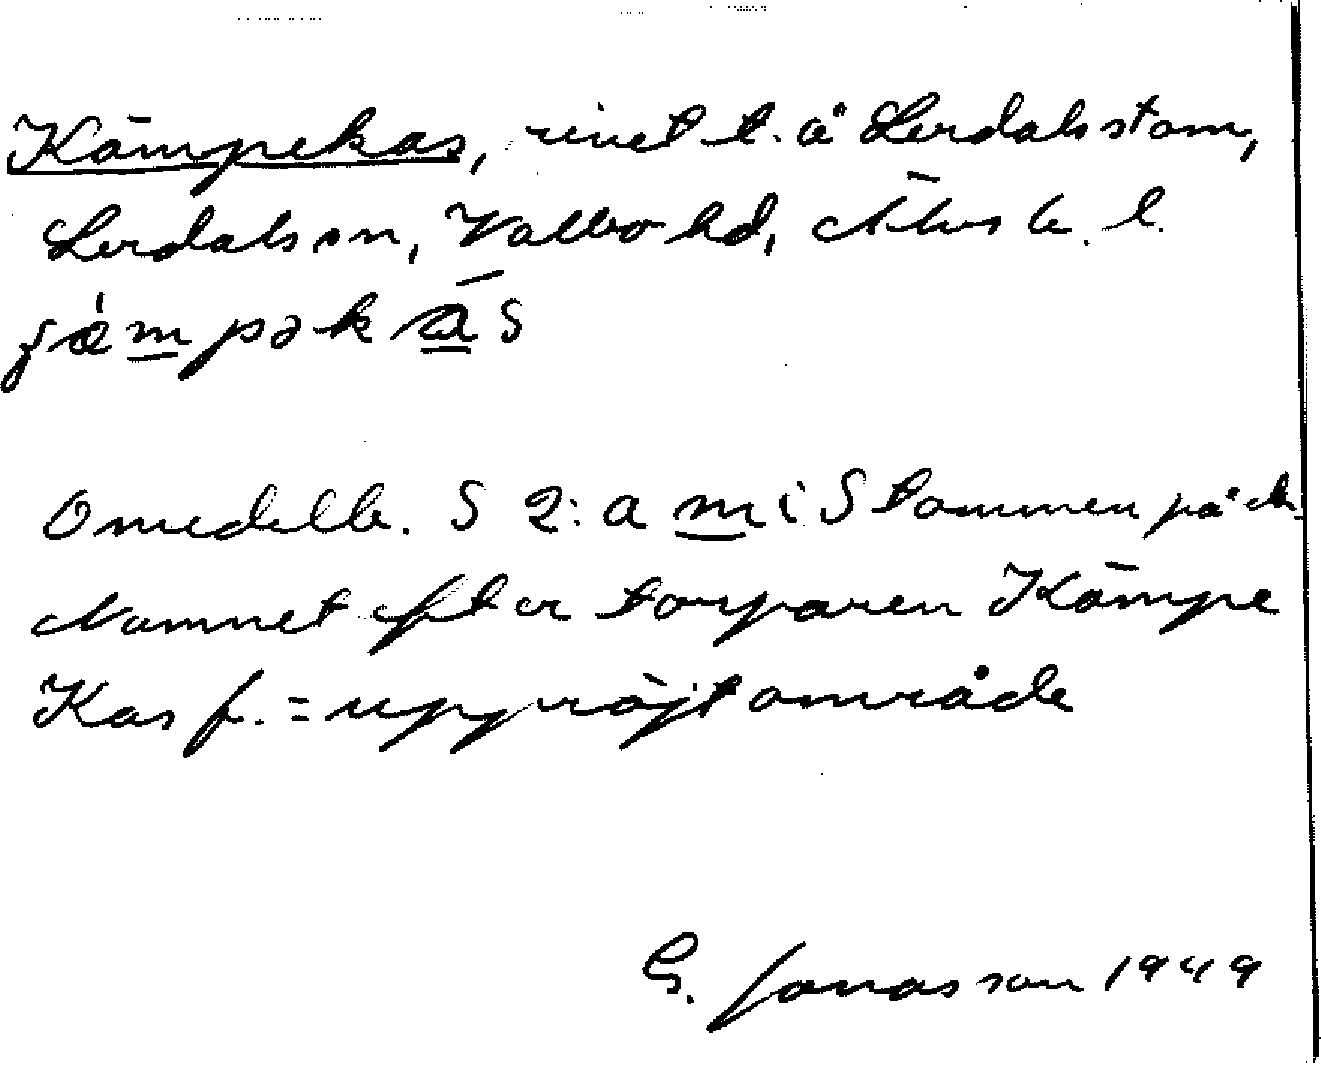 Kämpekas, rivet t. å Lerdalsstom,
Lerdals sn, Valbo hd, Älvsb. l.
Omedelb. S 2: a m i Stommen på ek.
Namnet efter torparen Kämpe
Kas f. = uppröjt område
G. Jonasson 1949